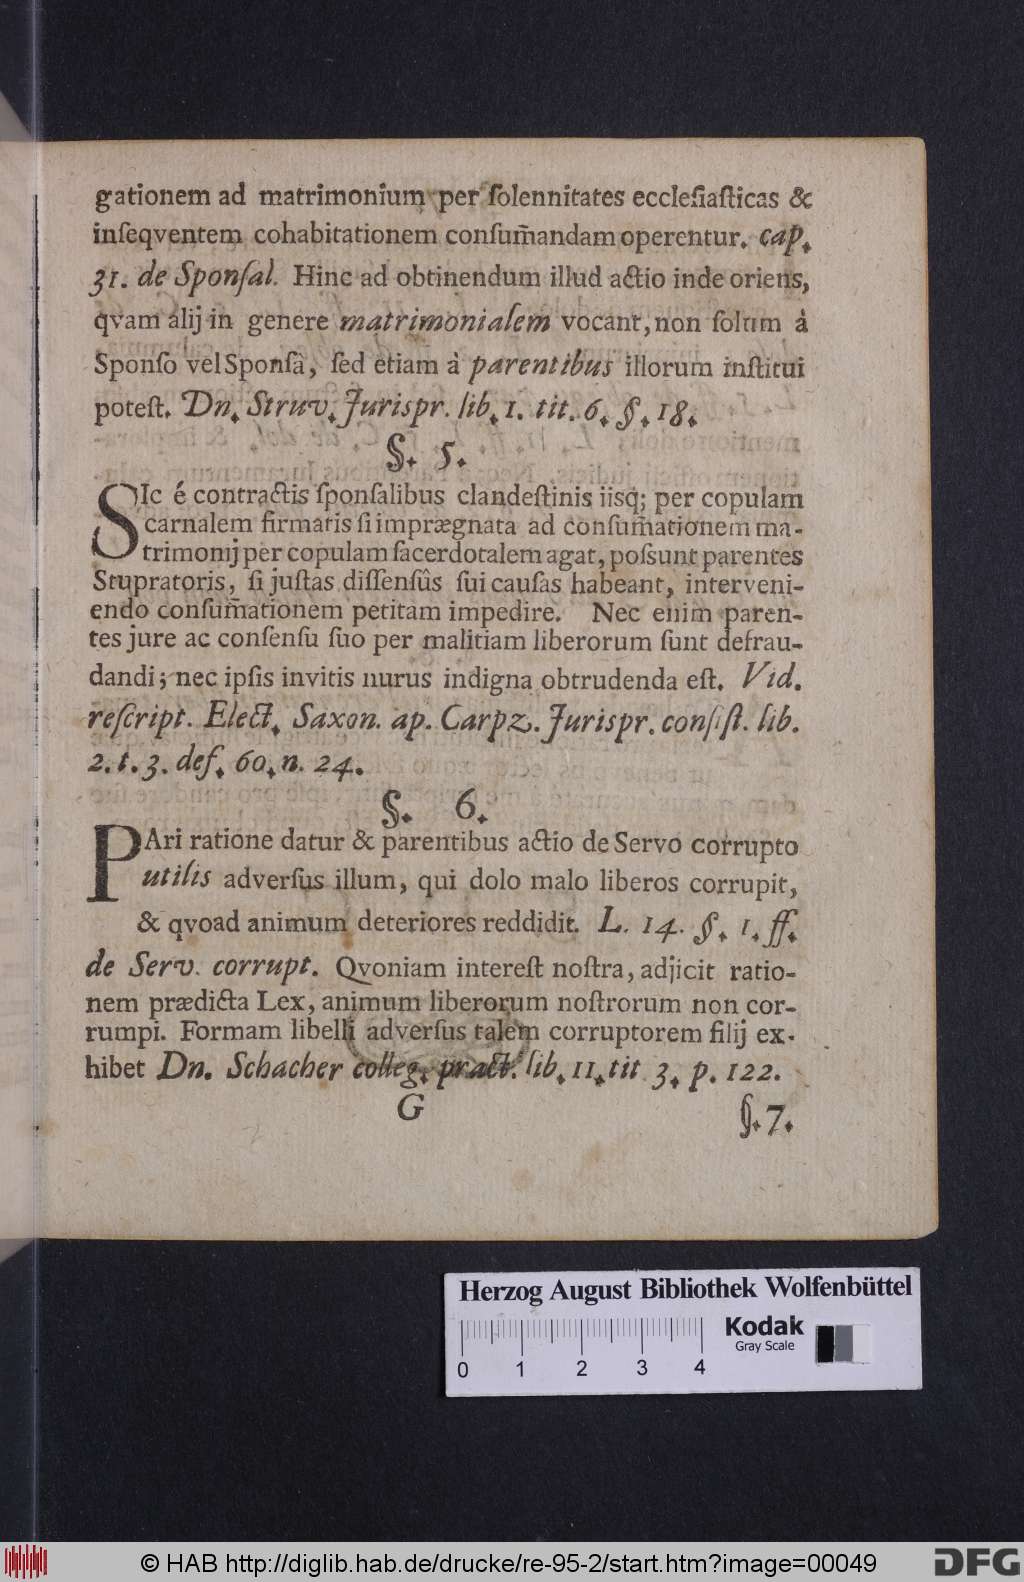 gationem ad matrimonium per ſolennitates eccleſiaſticas &
inſeqventem cohabitationem conſum̃andam operentur. cap.
31. de Sponſal. Hinc ad obtinendum illud actio inde oriens,
qvam alij in genere matrimonialem vocant, non ſolum à
Sponſo vel Sponsâ, ſed etiam à parentibus illorum inſtitui
poteſt. Dn. Struv. Jurispr. lib. 1. tit. 6. §. 18.
§. 5.
SIc é contractis ſponſalibus clandeſtinis iisq; per copulam
carnalem firmatis ſi imprægnata ad conſum̃ationem ma-
trimonij per copulam ſacerdotalem agat, poſsunt parentes
Stupratoris, ſi juſtas diſſenſûs ſui cauſas habeant, interveni-
endo conſum̃ationem petitam impedire. Nec enim paren-
tes jure ac conſenſu ſuo per malitiam liberorum ſunt defrau-
dandi; nec ipſis invitis nurus indigna obtrudenda eſt. Vid.
reſcript. Elect. Saxon. ap. Carpz. Jurispr. conſiſt. lib.
2. t. 3. def. 60. n. 24.
§. 6.
PAri ratione datur & parentibus actio de Servo corrupto
utilis adverſus illum, qui dolo malo liberos corrupit,
& qvoad animum deteriores reddidit. L. 14. §. 1. ff.
de Serv. corrupt. Qvoniam intereſt noſtra, adjicit ratio-
nem prædicta Lex, animum liberorum noſtrorum non cor-
rumpi. Formam libelli adverſus talem corruptorem filij ex-
hibet Dn. Schacher colleg. pract. lib. 11. tit 3. p. 122.
G
§. 7.
Herzog August Bibliothek Wolfenbüttel
Kodak
Gray Scale
0 1 2 3 4
© HAB http://diglib.hab.de/drucke/re-95-2/start.htm?image=00049
DFG